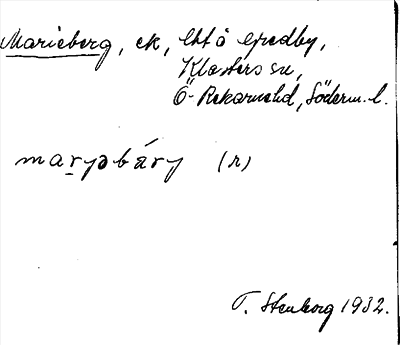 Marieberg, ek, lht å Gredby,
Klosters sn,
Ö-Rekarnehd, Söderm. l.
maryabáry (r)
T. Stenborg 1932.